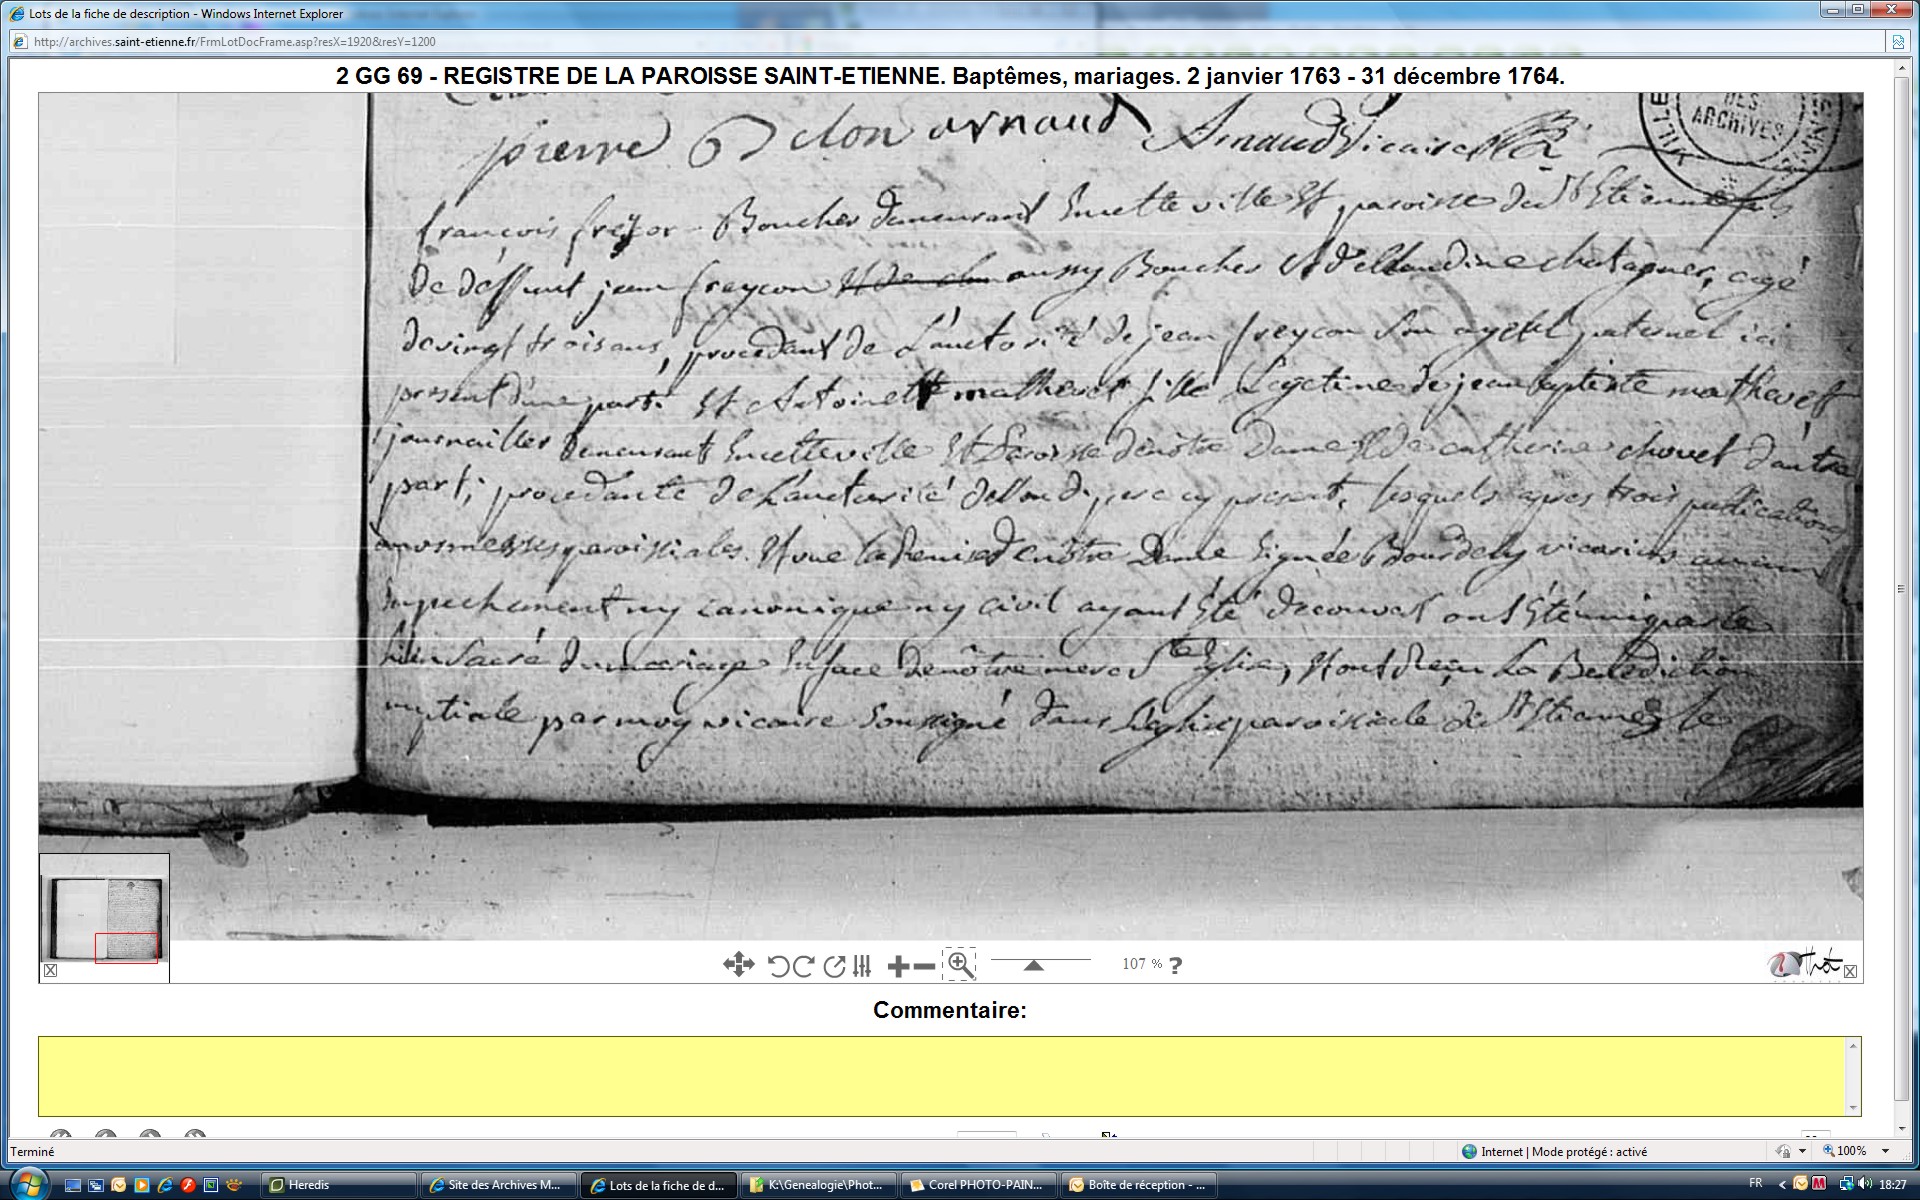 Lots de la fiche de description - Windows Internet Explorer
http://archives.saint-etienne.fr/FrmLotDocFrame.asp?resX=1920&resY=1200
2 GG 69 - REGISTRE DE LA PAROISSE SAINT-ETIENNE. Baptêmes, mariages. 2 janvier 1763 - 31 décembre 1764.
DES
ARCHIVES
pierre odon arnaud Arnaud Vicaire
françois freycon Boucher demeurant En cette ville Et paroisse de St Etienne fils
de deffunt jean freycon aussy Boucher Et de Claudine chatagner, agé
de vingt trois ans, procedant de L'auctorité de jean freycon Son ayeul paternel ici
present d'une part. Et Antoinette mathevet fille Legetime de jean baptiste mathevet
journailler demeurant En cette ville Et Paroisse de nôtre Dame Et de catherine chovet d'autre
part; procedante de L'auctorité de son dit pere cy present, lesquels apres trois publications
a nos messes paroissiales. Et vue la Remise de nôtre Dame Signée Bourdely vicaire aucun
Empechement ny canonique ny civil ayant Eté decouvert ont Eté unis par le
Lien Sacré du mariage En face de nôtre mere Ste Eglise, Et ont Reçu La Benediction
nuptiale par moy vicaire Soussigné dans L'eglise paroissiale de St Etienne le
107 % ?
Commentaire:
Terminé
Internet | Mode protégé : activé
100%
Heredis
Site des Archives M...
Lots de la fiche de d...
K:\Genealogie\Phot...
Corel PHOTO-PAIN...
Boîte de réception - ...
FR
18:27